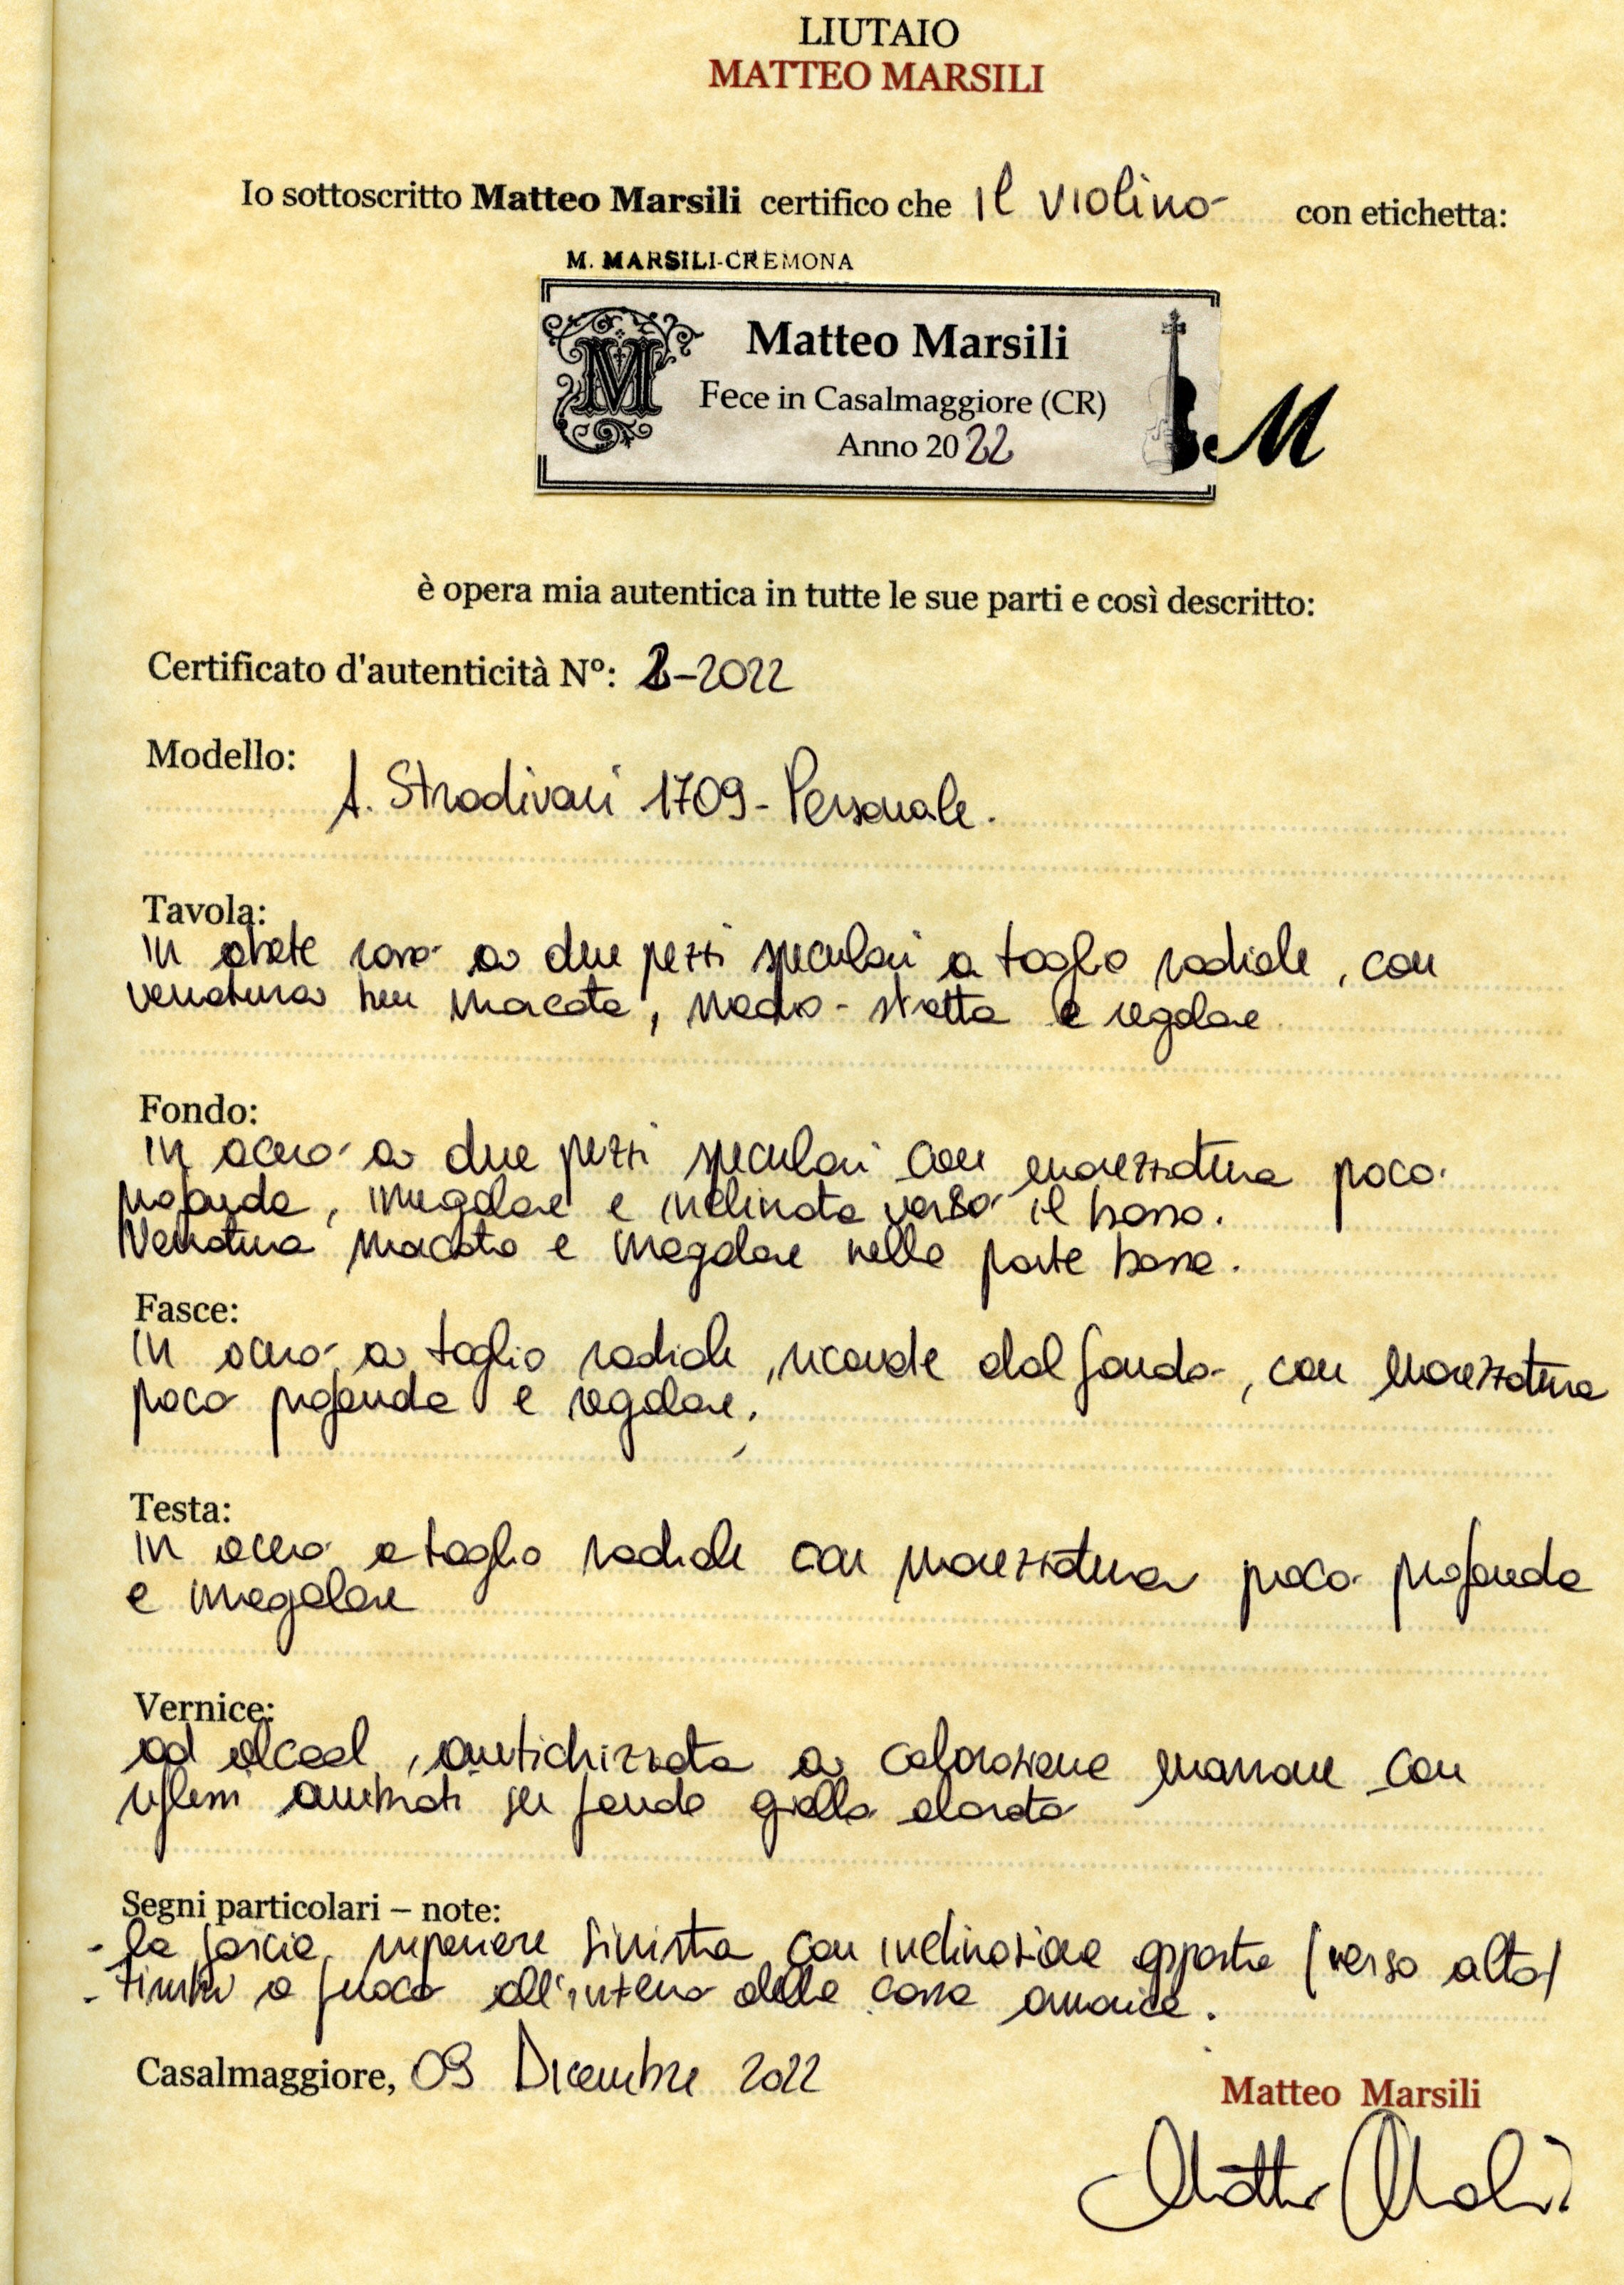 LIUTAIO
MATTEO MARSILI
Io sottoscritto Matteo Marsili certifico che il violino con etichetta:
M. MARSILI-CREMONA
M
Matteo Marsili
Fece in Casalmaggiore (CR)
Anno 2022
M
è opera mia autentica in tutte le sue parti e così descritto:
Certificato d'autenticità N°: -2022
Modello:
A. Stradivari 1709 - Personale.
Tavola:
In abete rosso a due pezzi speculari a taglio radiale, con
venatura ben marcata, medio-stretta e regolare
Fondo:
In acero a due pezzi speculari con marezzatura poco
profonda, irregolare e inclinata verso il basso.
Venatura marcata e irregolare nella parte bassa.
Fasce:
In acero a taglio radiale, ricavate dal fondo, con marezzatura
poco profonda e regolare.
Testa:
In acero a taglio radiale con marezzatura poco profonda
e irregolare
Vernice:
ad alcool, antichizzata a colorazione marrone con
riflessi ambrati su fondo giallo dorato
Segni particolari – note:
- la fascia superiore sinistra con inclinazione opposta (verso alto)
- timbro a fuoco all'interno della cassa armonica.
Casalmaggiore, 09 Dicembre 2022
Matteo Marsili
Matteo Marsili